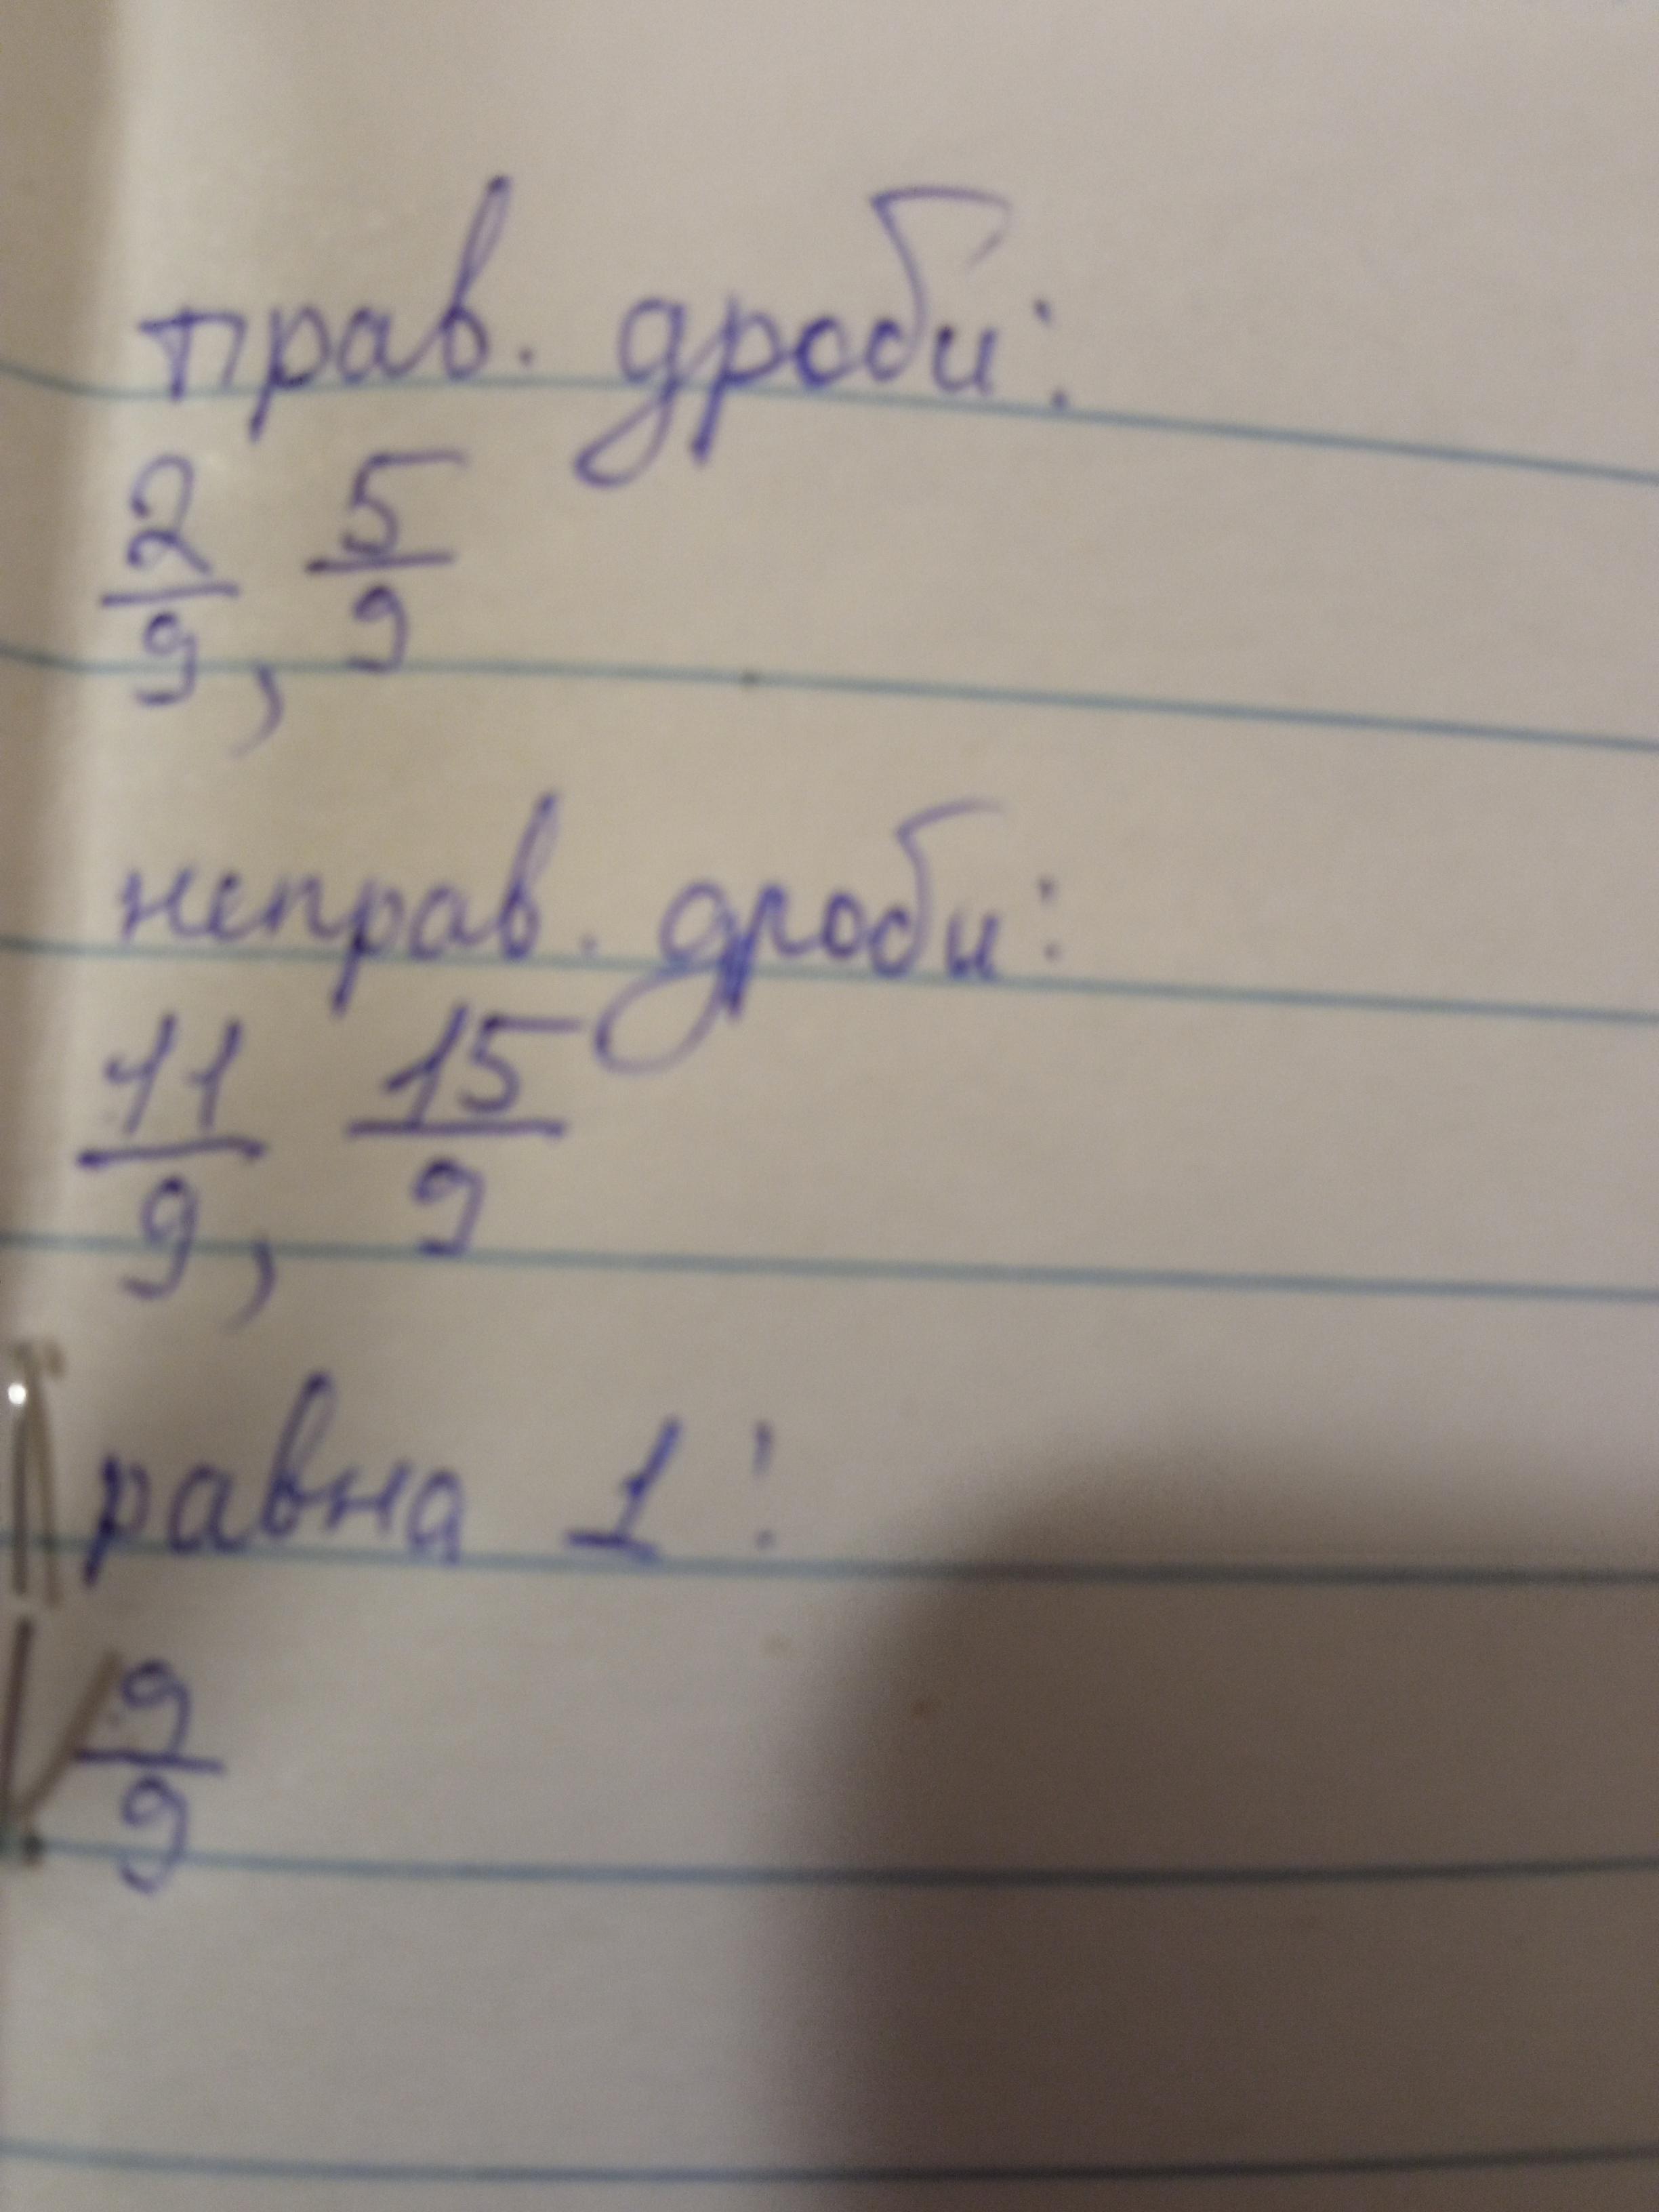 прав. дроби:
2/9, 5/9
неправ. дроби:
11/9, 15/9
равна 1:
9/9